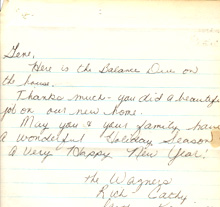 Gene,
Here is the Balance Due on
the house.
Thanks much - you did a beautiful
job on our new home.
May you & your family have
a wonderful Holiday Season
a very Happy New Year!
The Wagners
Rich Cathy